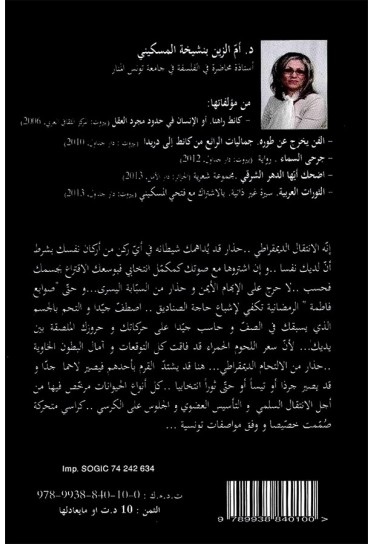 د. أمّ الزين بنشيخة المسكيني
أستاذة محاضرة في الفلسفة في جامعة تونس المنار
من مؤلفاتها:
- كانط راهنا، أو الإنسان في حدود مجرد العقل (بيروت: المركز الثقافي العربي، 2006)
- الفن يخرج عن طوره. جماليات الرائع من كانط إلى دريدا (بيروت: دار جداول، 2010)
- جرحى السماء . رواية (بيروت: دار جداول، 2012)
- اضحك أيّها الدهر الشرقي .مجموعة شعرية (الجزائر: دار الأمل، 2013)
- الثورات العربية. سيرة غير ذاتية. بالاشتراك مع فتحي المسكيني (بيروت: دار جداول، 2013)
إنّه الانتقال الديمقراطي ..حذار قد يُداهمك شيطانه في أيّ ركن من أركان نفسك بشرط
أنّ لديك نفسا ..و إن اشتروها مع صوتك كمكمّل انتخابي فبوسعك الاقتراع بجسمك
فحسب ..لا حرج على الإبهام الأيمن و حذار من السبّابة اليسرى...و حتّى "صوابع
فاطمة " الرمضانية تكفي لإشباع حاجة الصناديق .. اصطفّ جيّدا و التحم بالجسم
الذي يسبقك في الصفّ و حاسب جيّدا على حركاتك و حروزك الملصقة بين
يديك... لأنّ سعر اللحوم الحمراء قد فاقت كل التوقعات و آمال البطون الخاوية
..حذار من الالتحام الديمقراطي... هنا قد يشتدّ القرم بأحدهم فيصير لاحما جدّا و قد
يصير جرذا أو تيسا أو حتى ثورا انتخابيا ..كل أنواع الحيوانات مرخّص فيها من
أجل الانتقال السلمي و التأسيس العضوي و الجلوس على الكرسي ..كراسي متحركة
صُمّمت خصّيصا و وفق مواصفات تونسية ...
Imp. SOGIC 74 242 634
ت.د.م.ك : 0-10-840-9938-978
الثمن : 10 د.ت أو مايعادلها
9 789938 840100 >